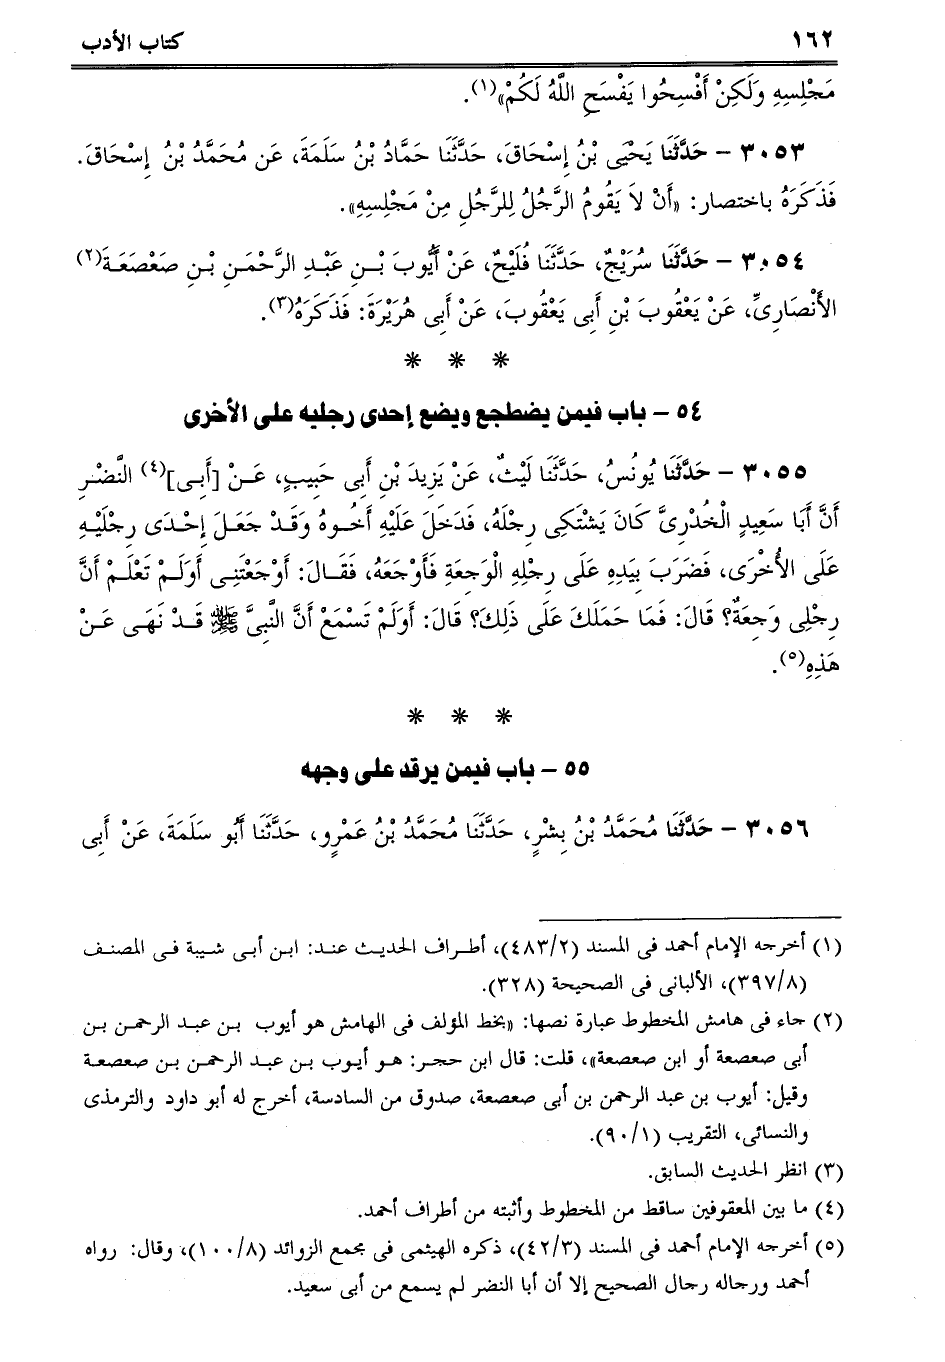 ١٦٢ كتاب الأدب
مَجْلِسِهِ وَلَكِنْ أَفْسِحُوا يَفْسَحِ اللَّهُ لَكُمْ»(١).
٣٠٥٣ - حَدَّثَنَا يَحْيَى بْنُ إِسْحَاقَ، حَدَّثَنَا حَمَّادُ بْنُ سَلَمَةَ، عَن مُحَمَّدُ بْنُ إِسْحَاقَ.
فَذَكَرَهُ باختصار: «أَنْ لاَ يَقُومُ الرَّجُلُ لِلرَّجُلِ مِنْ مَجْلِسِهِ».
٣٠٥٤ - حَدَّثَنَا سُرَيْجٌ، حَدَّثَنَا فُلَيْحٌ، عَنْ أَيُّوبَ بْنِ عَبْدِ الرَّحْمَنِ بْنِ صَعْصَعَةَ(٢)
الأَنْصَارِىِّ، عَنْ يَعْقُوبَ بْنِ أَبِى يَعْقُوبَ، عَنْ أَبِى هُرَيْرَةَ: فَذَكَرَهُ(٣).
* * *
٥٤ - باب فيمن يضطجع ويضع إحدى رجليه على الأخرى
٣٠٥٥ - حَدَّثَنَا يُونُسُ، حَدَّثَنَا لَيْثٌ، عَنْ يَزِيدَ بْنِ أَبِى حَبِيبٍ، عَنْ [أَبِى](٤) النَّضْرِ
أَنَّ أَبَا سَعِيدٍ الْخُدْرِىَّ كَانَ يَشْتَكِى رِجْلَهُ، فَدَخَلَ عَلَيْهِ أَخُوهُ وَقَدْ جَعَلَ إِحْدَى رِجْلَيْهِ
عَلَى الأُخْرَى، فَضَرَبَ بِيَدِهِ عَلَى رِجْلِهِ الْوَجِعَةِ فَأَوْجَعَهُ، فَقَالَ: أَوْجَعْتَنِى أَوَلَمْ تَعْلَمْ أَنَّ
رِجْلِى وَجِعَةٌ؟ قَالَ: فَمَا حَمَلَكَ عَلَى ذَلِكَ؟ قَالَ: أَوَلَمْ تَسْمَعْ أَنَّ النَّبِىَّ ﷺ قَدْ نَهَى عَنْ
هَذِهِ(٥).
* * *
٥٥ - باب فيمن يرقد على وجهه
٣٠٥٦ - حَدَّثَنَا مُحَمَّدُ بْنُ بِشْرٍ، حَدَّثَنَا مُحَمَّدُ بْنُ عَمْرٍو، حَدَّثَنَا أَبُو سَلَمَةَ، عَنْ أَبِى
(١) أخرجه الإمام أحمد فى المسند (٤٨٣/٢)، أطراف الحديث عند: ابن أبى شيبة فى المصنف
(٣٩٧/٨)، الألبانى فى الصحيحة (٣٢٨).
(٢) جاء فى هامش المخطوط عبارة نصها: «بخط المؤلف فى الهامش هو أيوب بن عبد الرحمن بن
أبى صعصعة أو ابن صعصعة»، قلت: قال ابن حجر: هو أيوب بن عبد الرحمن بن صعصعة
وقيل: أيوب بن عبد الرحمن بن أبى صعصعة، صدوق من السادسة، أخرج له أبو داود والترمذى
والنسائى، التقريب (٩٠/١).
(٣) انظر الحديث السابق.
(٤) ما بين المعقوفين ساقط من المخطوط وأثبته من أطراف أحمد.
(٥) أخرجه الإمام أحمد فى المسند (٤٢/٣)، ذكره الهيثمى فى مجمع الزوائد (١٠٠/٨)، وقال: رواه
أحمد ورجاله رجال الصحيح إلا أن أبا النضر لم يسمع من أبى سعيد.